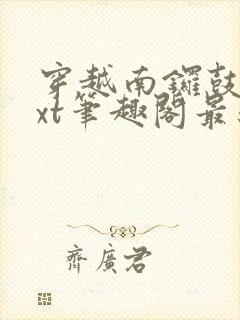 穿越南鑼鼓
xt筆趣閣最
齊廣君